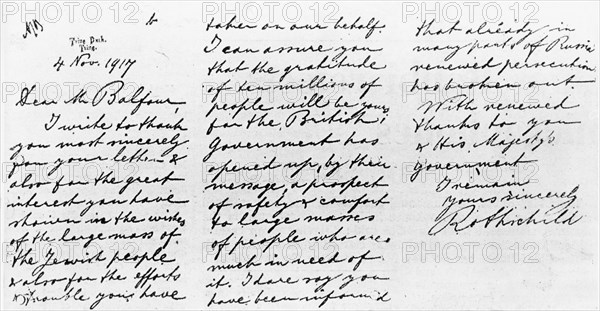 Tring Park,
Tring.
4 Nov. 1917
Dear Mr Balfour,
I write to thank
you most sincerely
for your letter &
also for the great
interest you have
shown in the wishes
of the large mass of
the Jewish people
& also for the efforts
& trouble you have
taken on our behalf.
I can assure you
that the gratitude
of ten millions of
people will be yours
for the British
Government has
opened up, by their
message, a prospect
of safety & comfort
to large masses
of people who are
much in need of
it. I dare say you
have been inform'd
that already in
many parts of Russia
renewed persecution
has broken out.
With renewed
thanks to you
& His Majesty's
government
I remain
yours sincerely
Rothschild
PHOTO12